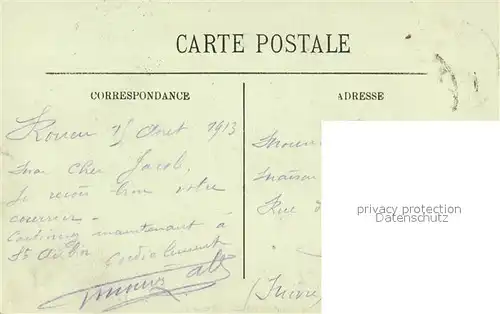 CARTE POSTALE
CORRESPONDANCE
ADRESSE
Rouen 15 Août 1913
Mon cher Jacob,
Je reçois bien votre
courrier.
Continuez maintenant à
St Aubin
Cordialement
Maison
Rue
privacy protection
Datenschutz